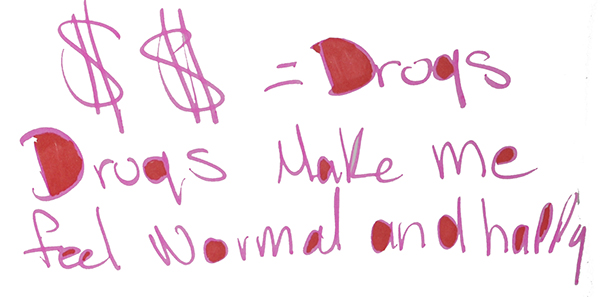 $ $ = Drugs
Drugs Make me
feel Normal and happy